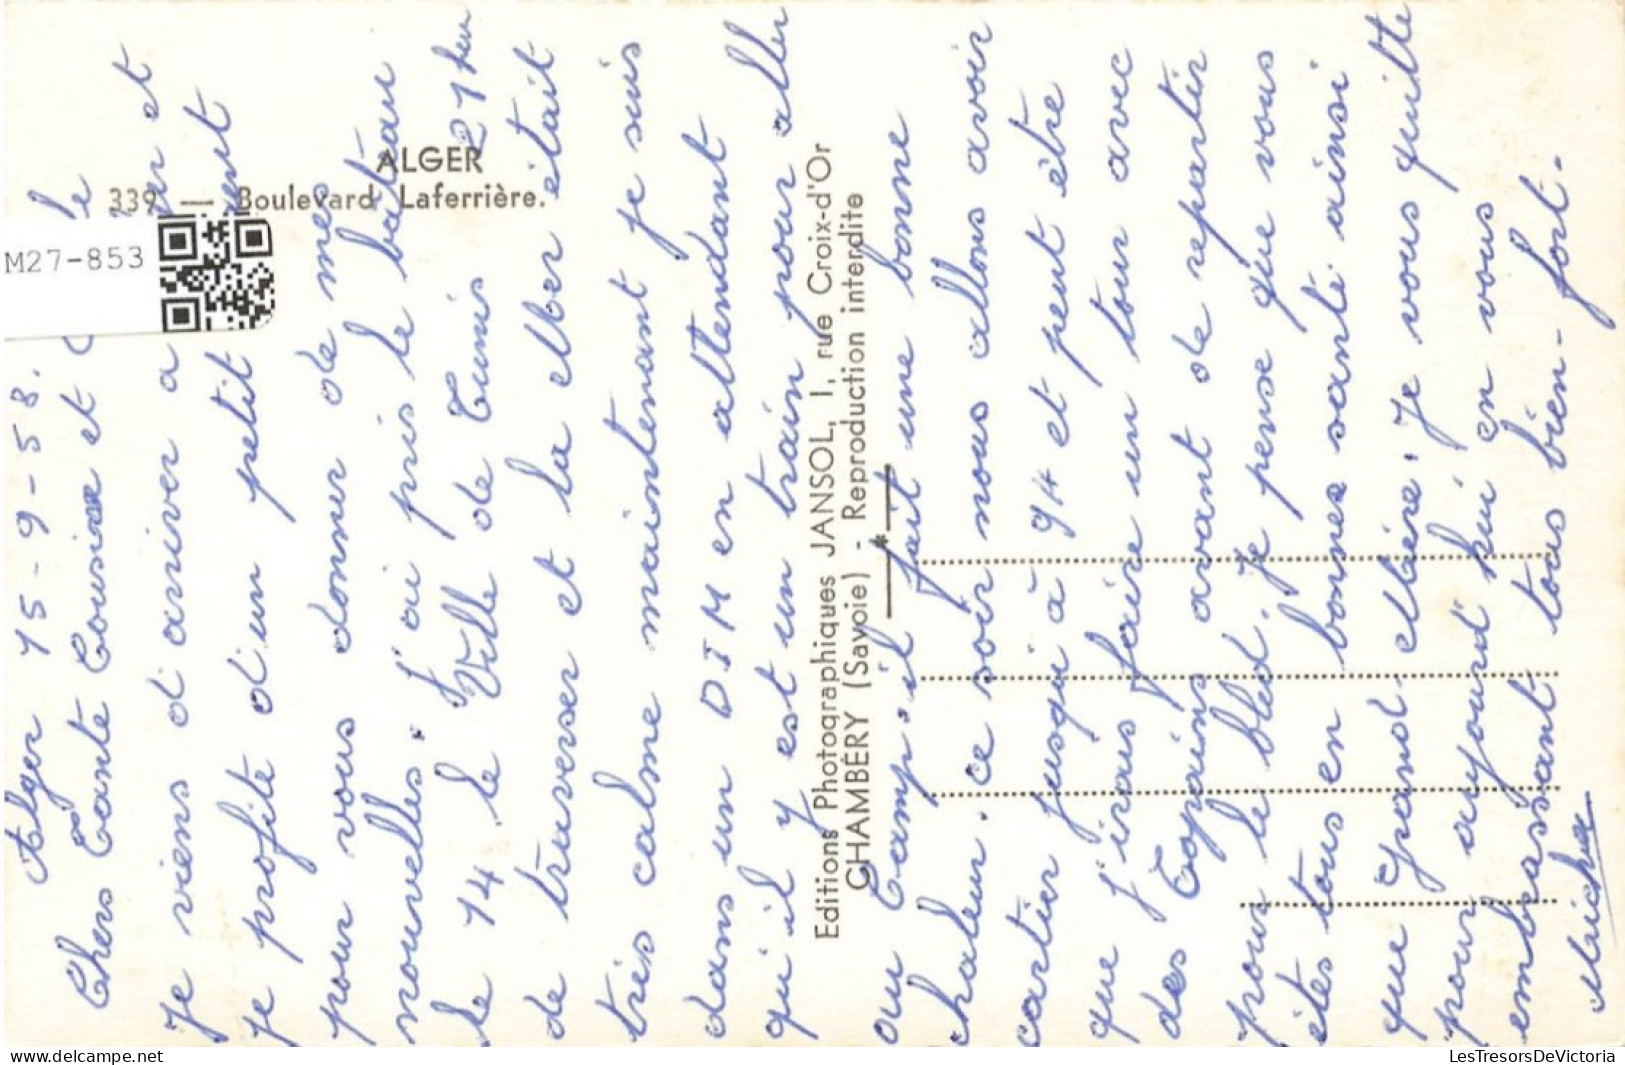 ALGER
339 — Boulevard Laferrière.
M27-853
Alger 15-9-58.
Chers Tante Cousine et
Je viens d'ariver a et
je profite d'un petit
pour vous donner de mes
nouvelles. J'ai pris le bateau
le 14. le Ville de Tunis 21 heu
de traverser et la Mer était
tres calme maintenant je suis
dans un D.I.M en attendant
qu'il y est un train pour aller
au Camp. il fait une bonne
chaleur. ce soir nous allons avoir
cartier jusqu'à 9H et peut être
que j'irais faire un tour avec
des Copains avant de repartir
pour le bled. Je pense que vous
êtes tous en bonne santé ainsi
que Grand Mère. Je vous quitte
pour aujourd'hui en vous
embrassant tous bien-fort.
Editions Photographiques JANSOL, 1, rue Croix-d'Or
CHAMBÉRY (Savoie) - Reproduction interdite
LesTresorsDeVictoria
www.delcampe.net